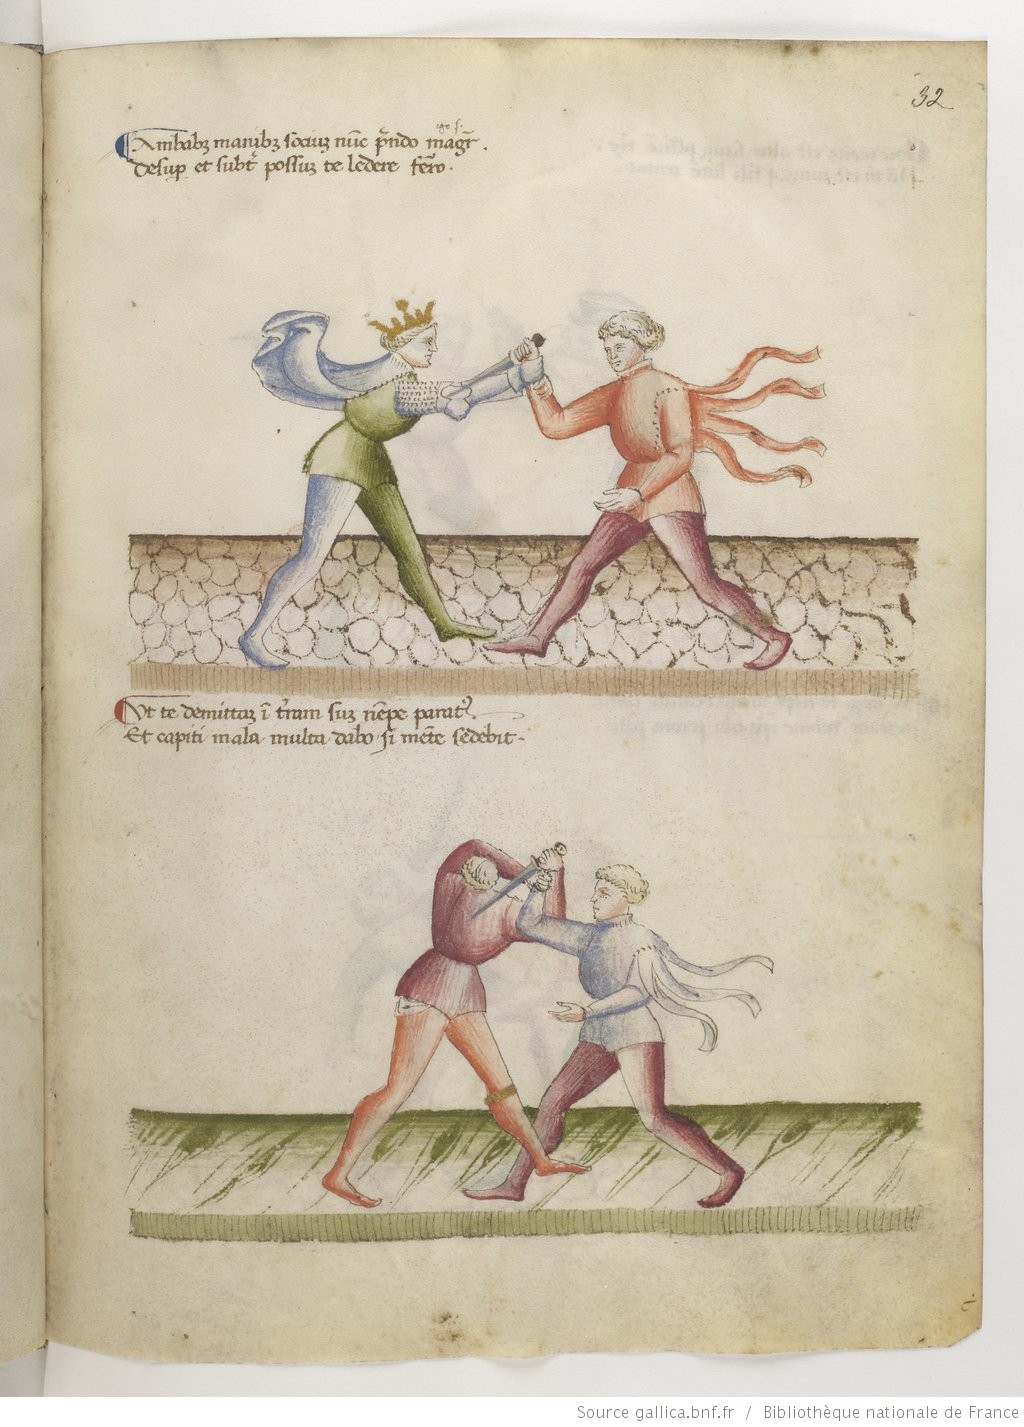 32
igr s.
Ambabꝫ manibꝫ sociuꝫ nūc p̄ndo magr̄ .
Desup et subt᷑ possuꝫ te ledere fer̄o ·
Vt te demittaꝫ ī t̄ram suꝫ nēpe parat᷒ .
Et capiti mala multa dabo si mēte sedebit -
Source gallica.bnf.fr / Bibliothèque nationale de France